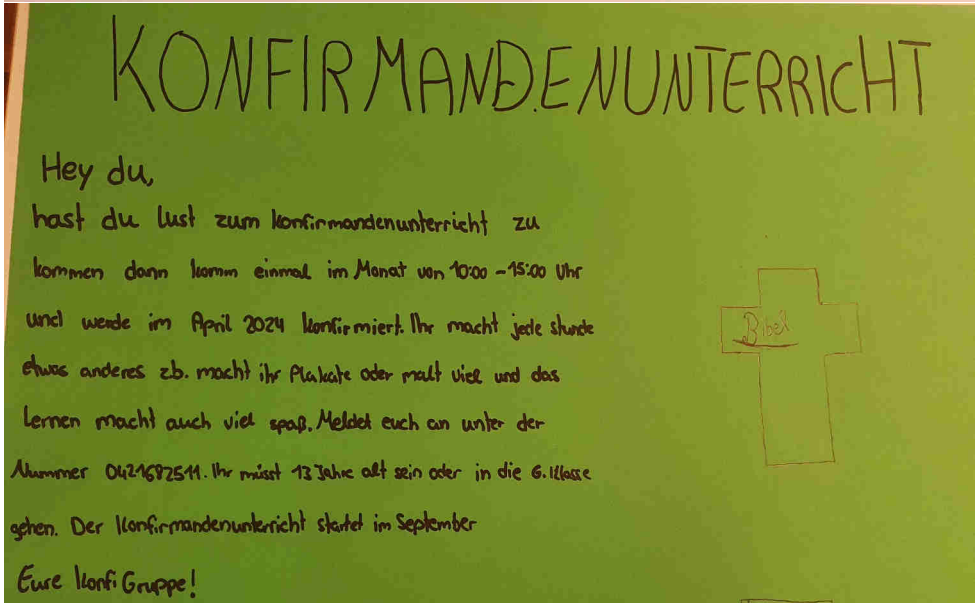 KONFIRMANDENUNTERRICHT
Hey du,
hast du lust zum konfirmandenunterricht zu
kommen dann komm einmal im Monat von 10:00 - 15:00 Uhr
und werde im April 2024 konfirmiert. Ihr macht jede stunde
etwas anderes zb. macht ihr Plakate oder malt viel und das
Lernen macht auch viel spaß. Meldet euch an unter der
Nummer 0421682511. Ihr müsst 13 Jahre alt sein oder in die 6. Klasse
gehen. Der Konfirmandenunterricht startet im September
Eure Konfi Gruppe!
Bibel